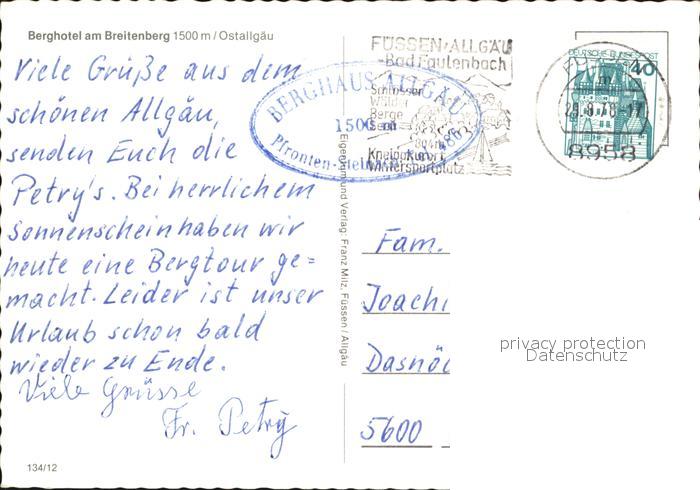 Berghotel am Breitenberg 1500 m / Ostallgäu
Viele Grüße aus dem
schönen Allgäu,
senden Euch die
Petry's. Bei herrlichem
Sonnenschein haben wir
heute eine Bergtour ge=
macht. Leider ist unser
Urlaub schon bald
wieder zu Ende.
Viele Grüsse
Fr. Petry
134/12
Eigentum und Verlag: Franz Milz, Füssen / Allgäu
BERGHAUS ALLGÄU
1500 m
Pfronten-
FÜSSEN·ALLGÄU
-Bad Faulenbach
Schlösser
Wälder
Berge
Seen
Kneippkurort
Wintersportplatz
DEUTSCHE BUNDESPOST
40
8958
Fam.
Joachi
Dasnöc
5600
privacy protection
Datenschutz